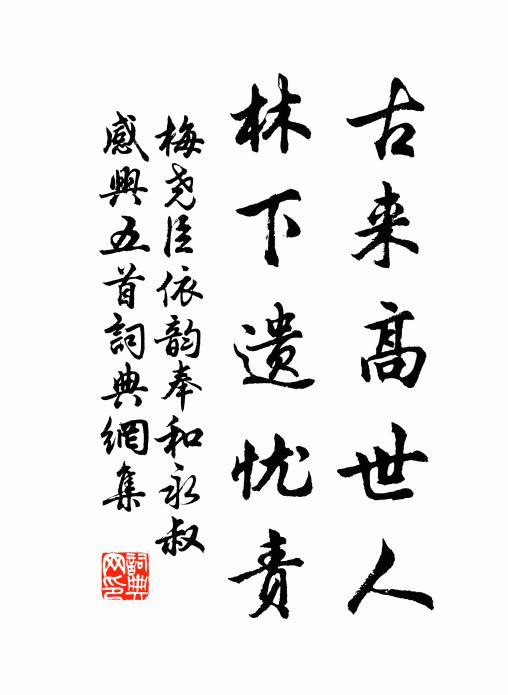 古来高世人
林下遗忧责
梅尧臣依韵奉和永叔
感興五首詞典網集
詞典
网印